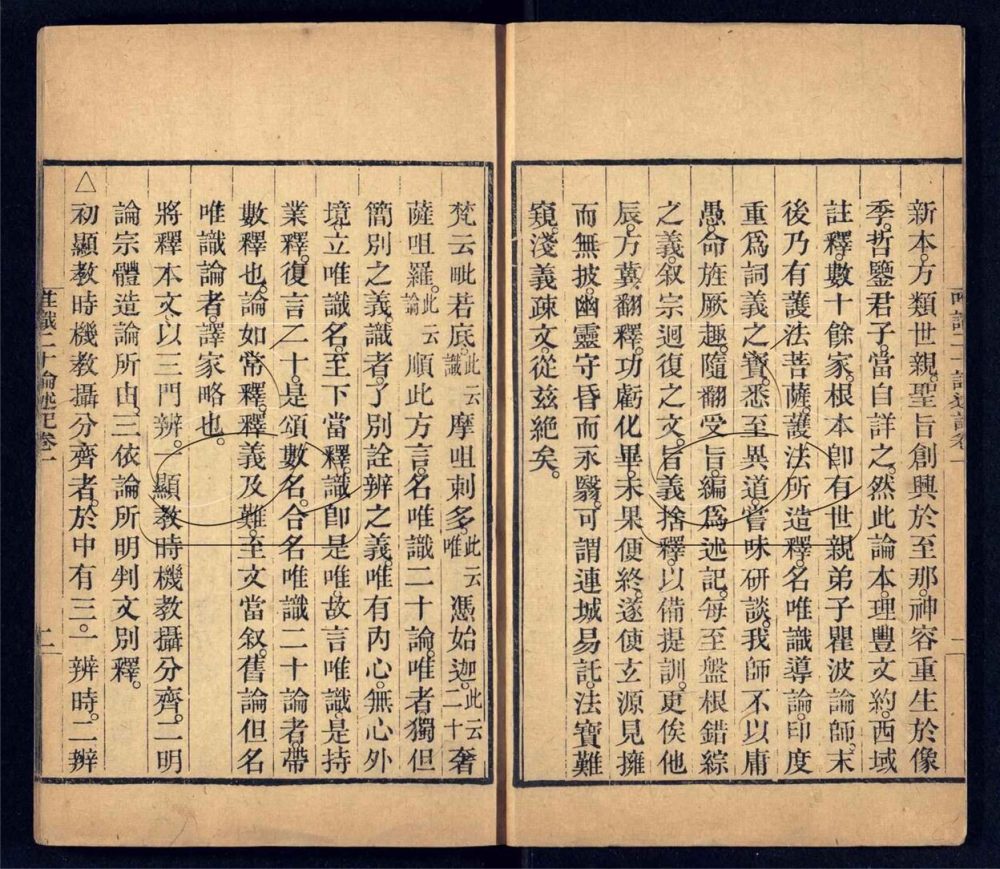 新本。方類世親。聖旨創興於至那。神容重生於像
季。哲鑒君子。當自詳之。然此論本。理豐文約。西域
註釋。數十餘家。根本卽有世親弟子瞿波論師。末
後乃有護法菩薩。護法所造釋。名唯識導論。印度
重爲詞義之寶。悉至異道。嘗味研談。我師不以庸
愚。命旌厥趣。隨翻受旨。編爲述記。每至盤根錯綜
之義。叙宗迴復之文。旨義捨釋。以備提訓。更俟他
辰。方冀翻釋。功虧化畢。未果便終。遂使玄源見擁
而無披。幽靈守昏而永翳。可謂連城易託。法寶難
窺。淺義疎文。從茲絕矣。
梵云毗若底。此云識摩呾剌多。此云唯憑始迦。此云二十奢
薩呾羅。此云論順此方言。名唯識二十論。唯者獨但
簡別之義。識者了別詮辨之義。唯有內心。無心外
境。立唯識名。至下當釋。識卽是唯。故言唯識。是持
業釋。復言二十。是頌數名。合名唯識二十論者。帶
數釋也。論如常釋。釋義及難。至文當叙。舊論但名
唯識論者。譯家略也。
將釋本文。以三門辨。一顯教時機教攝分齊。二明
論宗體造論所由。三依論所明判文別釋。
△初顯教時機教攝分齊者。於中有三。一辨時。二辨
唯識二十論述記卷一
二